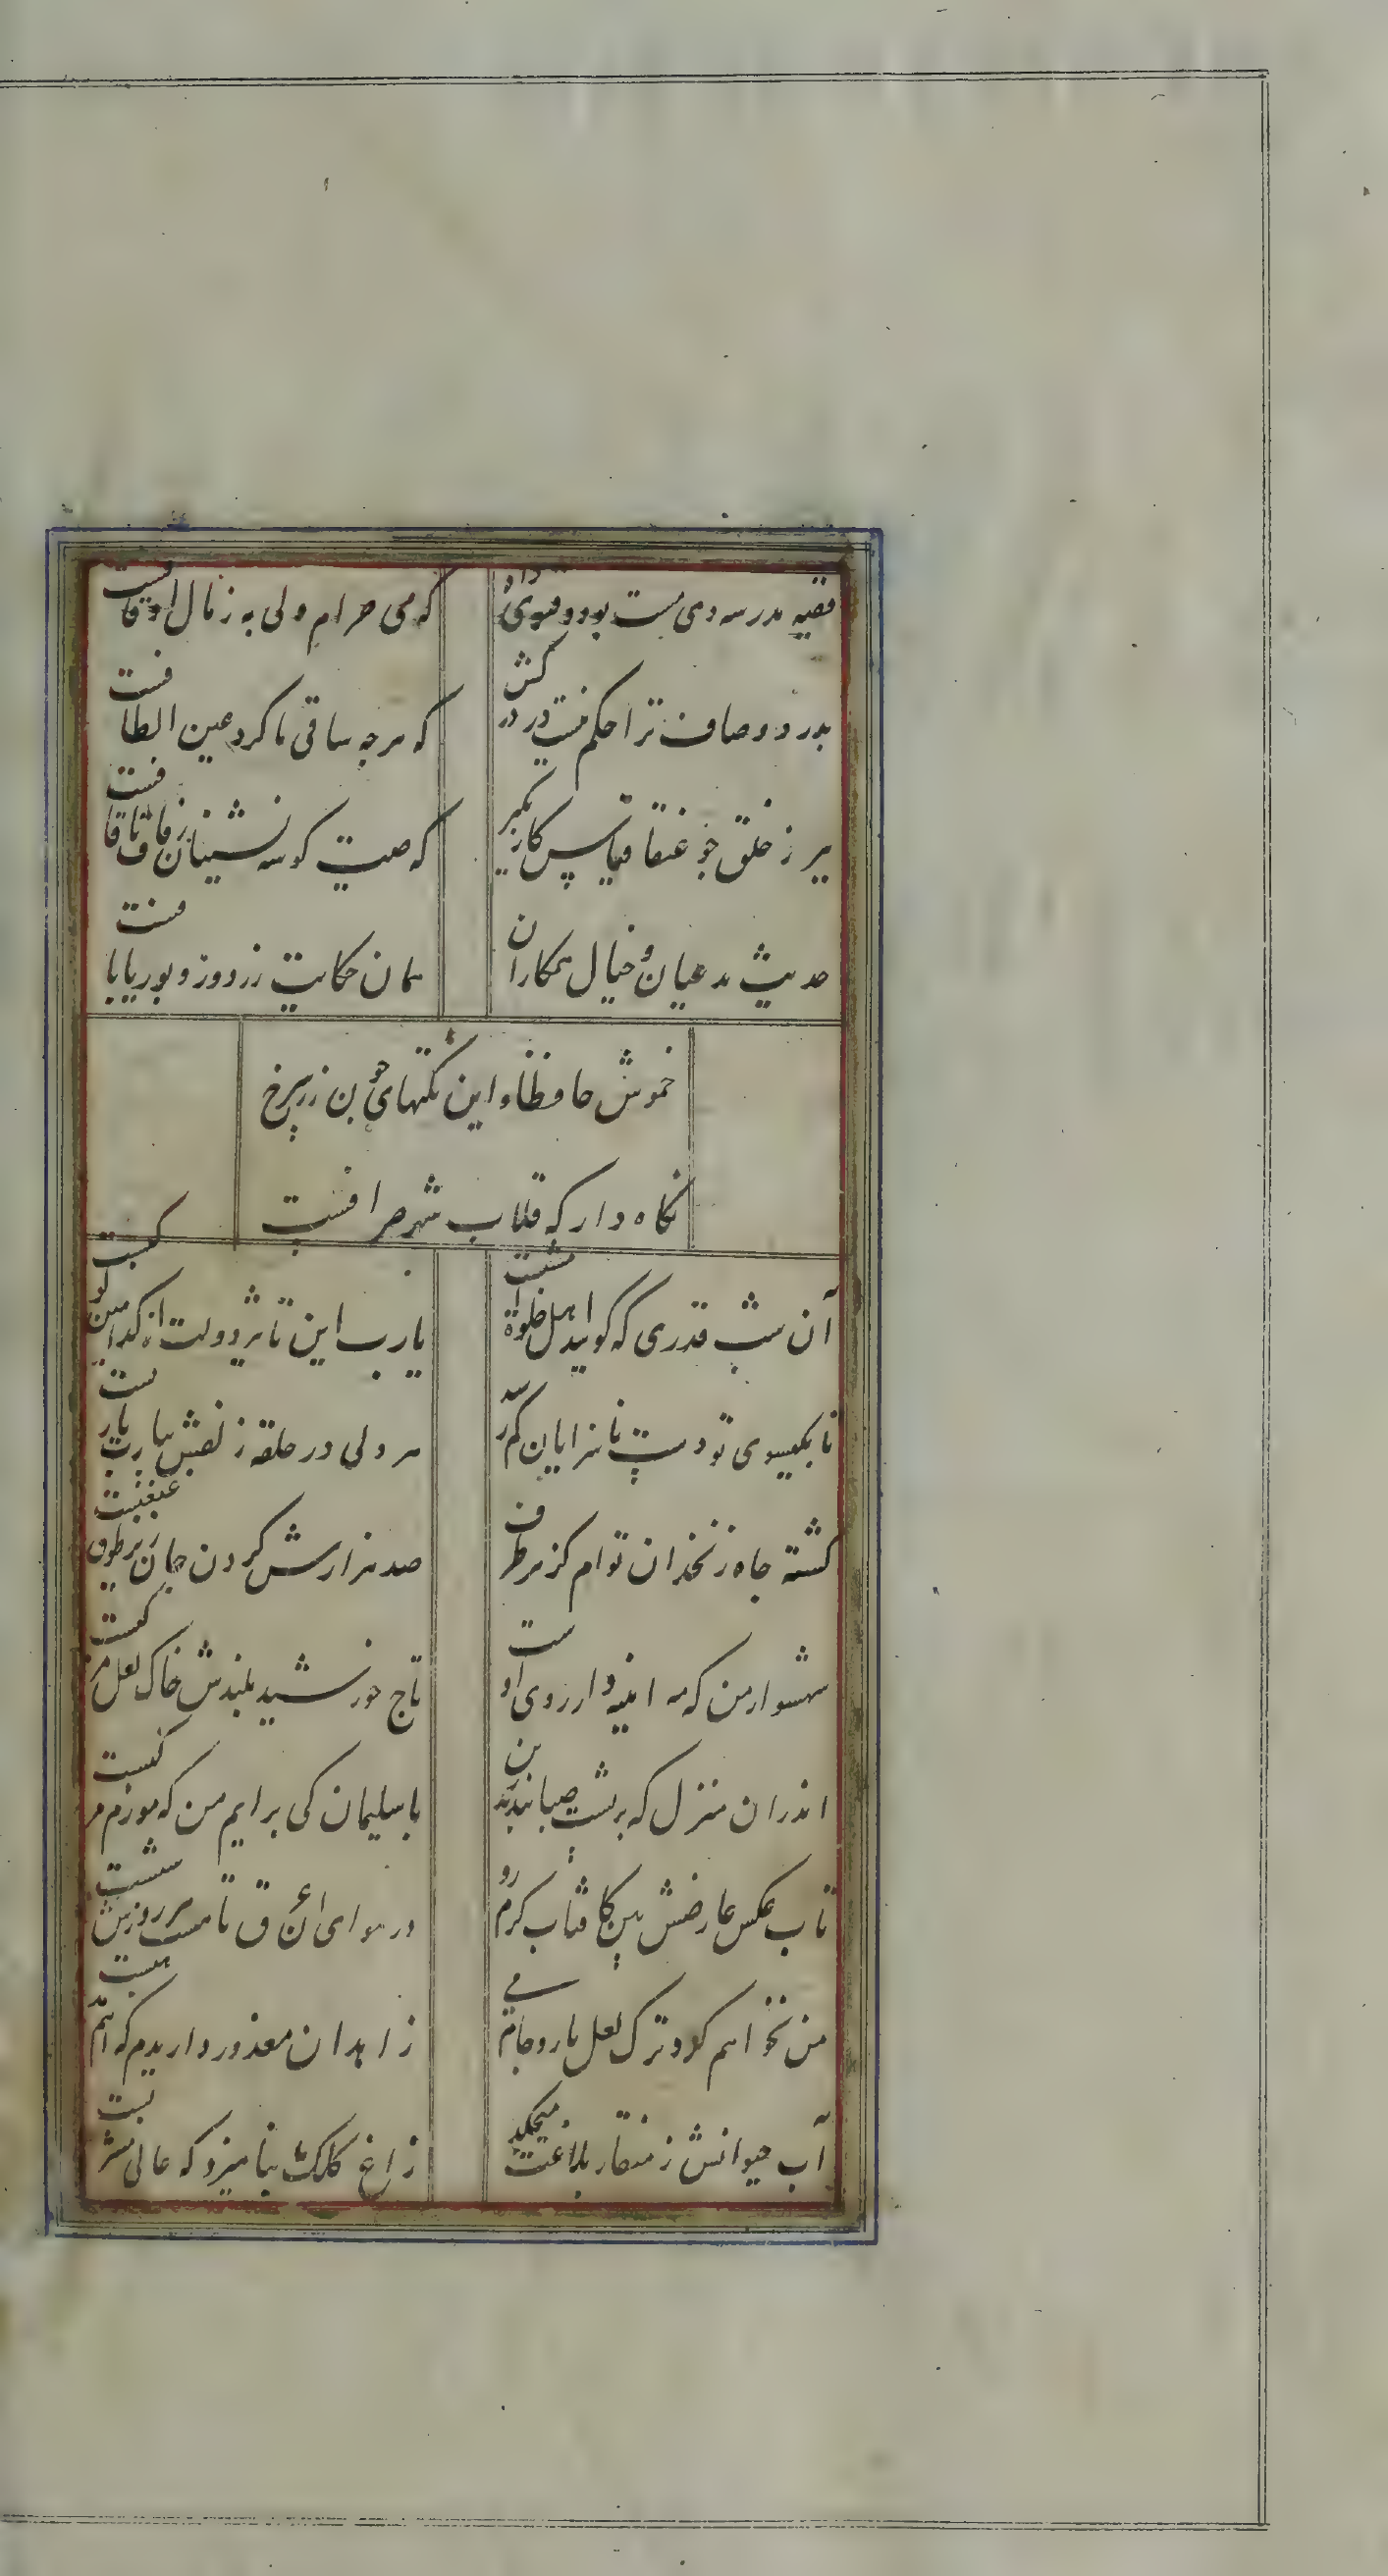 فقیه مدرسه دی مست بود و فتوی داد
که می حرام ولی به ز مال اوقافست
بدرد و صاف ترا حکم نیست در درکش
که هرچه ساقی ما کرد عین الطافست
ببر ز خلق چو عنقا قیاس کار بگیر
که صیت گوشه نشینان ز قاف تا قافست
حدیث مدعیان و خیال همکاران
همان حکایت زردوز و بوریابافست
خموش حافظ و این نکتهای چون زر سرخ
نگاه دار که قلاب شهر صرافست
آن شب قدری که گویند اهل خلوة امشبست
یارب این تاثیر دولت از کدامین کوکبست
تا بگیسوی تو دست ناسزایان کم رسد
هر دلی در حلقه زلفش بیارب یاربست
کشته چاه زنخدان توام کز هر طرف
صد هزارش گردن جان زیر طوق غبغبست
شهسوار من که مه اینه دار روی اوست
تاج خورشید بلندش خاک لعل مرکبست
اندران منزل که بر پشت صبا بندند زین
با سلیمان کی برایم من که مورم مرکبست
تاب عکس عارضش بین کافتاب کرم رو
در هوای ان ق تا هست هر روزش شبست
من نخواهم کرد ترک لعل یار و جام می
زاهدان معذور داریدم که اینم مذهبست
آب حیوانش ز منقار بلاغت میچکد
زاغ کلک بنامیزد که عالی مشربست